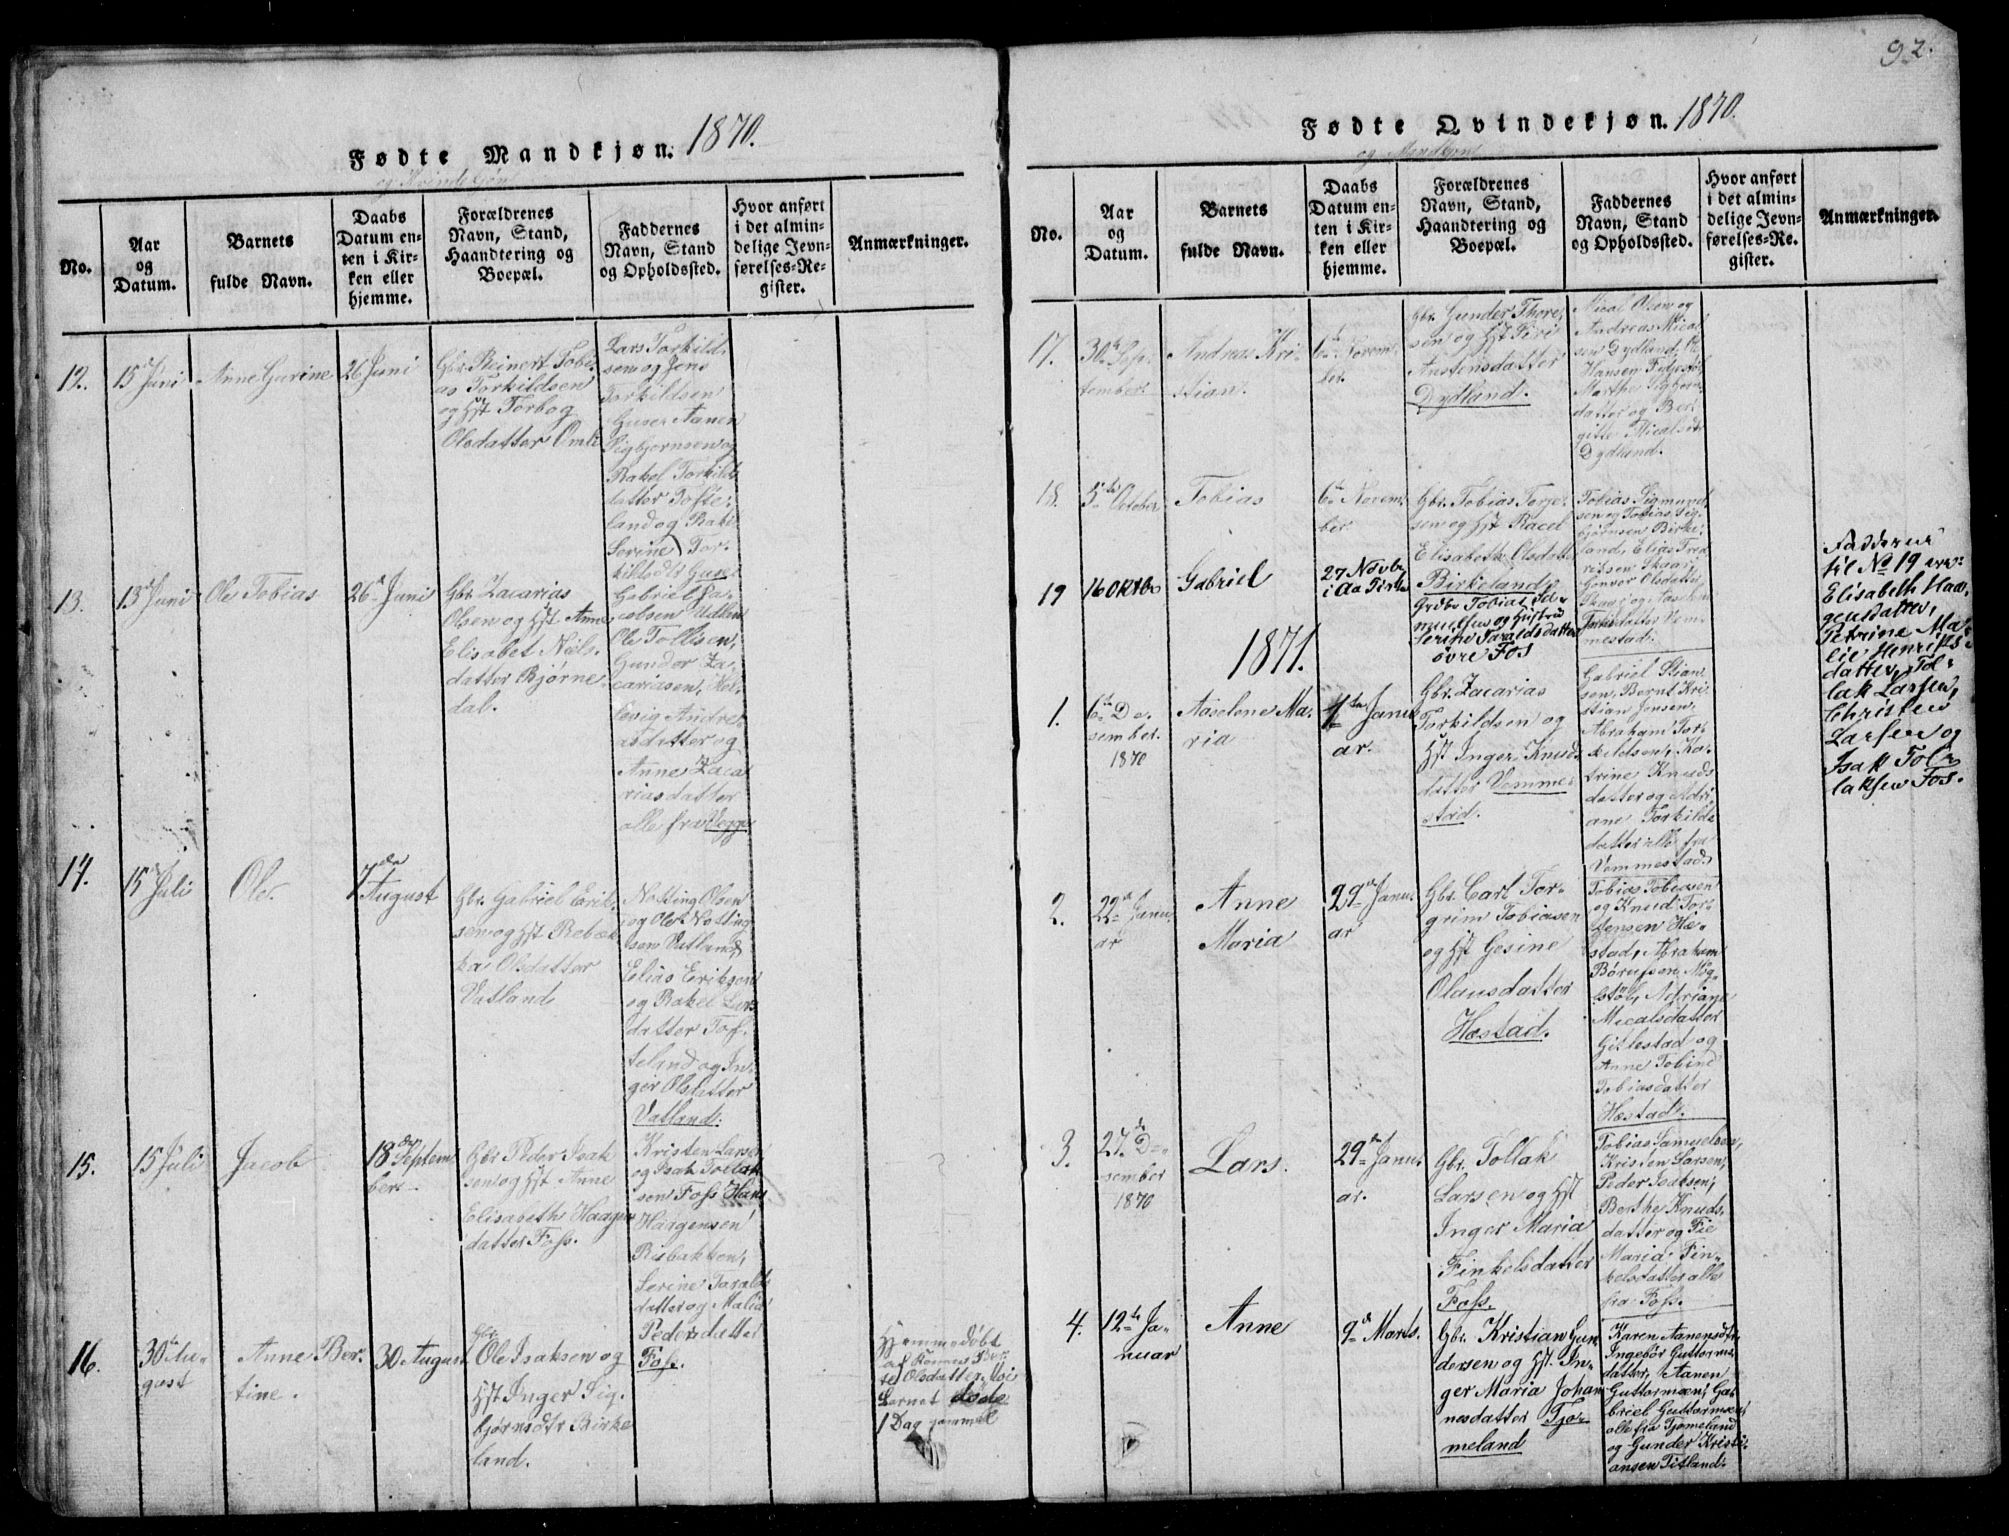 92.
Fødte Mandkjøn. 1870.
og Kvindekjøn
No.
Aar
og
Datum.
Barnets
fulde Navn.
Daabs
Datum en-
ten i Kir-
ken eller
hjemme.
Forældrenes
Navn, Stand,
Haandtering og
Boepæl.
Faddernes
Navn, Stand
og Opholdssted.
Hvor anført
i det almin-
delige Jevn-
førelses-Re-
gister.
Anmærkninger.
12.
15 Juni
Anne Gurine
26 Juni
Gbr. Reinert Tobi-
as Torkildsen
og Hst Torbog
Olsdatter Omli
Lars Torkild-
sen og Jens
Torkildsen
Aanen
Sigbjørnsen og
Rakel Torkilds
datter Tofte-
land og
Serine Tor-
13.
13 Juni
Ole Tobias
26 Juni
Gbr. Zacarias
Olsen og Hst Anne
Elisabet Niels-
datter Bjørne-
dal.
Gabriel
Ole Tollisen,
Gunder Za-
cariasen,
Andre-
asdatter og
Anne Zaca-
riasdatter
alle fra
14.
15 Juli
Ole.
7de August
Gbr. Gabriel Erik-
sen og Hst Rebek-
ka Olsdatter
Vatland
Notting Olsen
og Ole Notting
sen Vatland,
Elias Eriksen
og Rakel Lars
datter Tof-
teland og In-
ger Olsdatter
Vatland.
15.
15 Juli
Jacob
18den Septem
ber
Gbr. Peder Isak
sen og Hst Anne
Elisabeth Haagen
datter Foss.
Kristen Larsen
og Isak Tollak
sen Foss Hans
Haagensen
Risbakken,
Serine Taralds
datter og Malia
Pedersdatter
Foss.
16.
30te Au-
gust
Anne Ber-
tine.
30 August
Gbr.
Ole Isaksen og
Hst Inger Sig-
bjørnsdtr Birke
land.
Hjemmedøbt
af
Olsdatter Moi
Barnet døde
1 Dag gammel
Fødte Qvindekjøn. 1870.
og Mandkjøn
No.
Aar
og
Datum.
Barnets
fulde Navn.
Daabs
Datum en-
ten i Kir-
ken eller
hjemme.
Forældrenes
Navn, Stand,
Haandtering og
Boepæl.
Faddernes
Navn, Stand
og Opholdssted.
Hvor anført
i det almin-
delige Jevn-
førelses-Re-
gister.
Anmærkninger.
17.
30te Sep-
tember
Andreas Kri-
stian.
6te Novem-
ber.
Gbr. Gunder Thore-
sen og Hst Siri
Austensdatter
Dydland.
Mical Olsen og
Andreas Mical
sen Dydland,
Hansen
Marthe Sigbjørn
datter og Ber-
gitte Micalsdtr
Dydland.
18.
5te October
Tobias
6te Novem-
ber
Gbr. Tobias Terje-
sen og Hst Racel
Elisabeth Olsdatter
Birkeland.
Tobias Sigmund
sen og Tobias Sig-
bjørnsen Birke-
land, Elias Fred
riksen Skaar,
Gunvor Olsdatter
Skaar og
datter Vem-
mestad.
19
16 Oktbr
Gabriel
27 Novbr
i Aa Kirke
Grdbr Tobias Sa-
muelsen og Hustru
Serine Taraldsdatter
øvre Fos
Fadderne
til No 19 ere:
Elisabeth Haa-
gensdatter,
Petrine Ma-
lie Henriks-
datter, Tol-
lak Larsen,
Christen
Larsen og
Isak Tol-
laksen Fos.
1871.
1.
6te De-
sember
1870
Aaselene Ma-
ria
1ste Janu-
ar.
Gbr. Zacarias
Torkildsen og
Hst Inger Knuds
datter Vemme-
stad.
Gabriel Stian-
sen, Bernt Kri-
stian Jensen,
Abraham Tor-
kildsen, Ka-
trine Knuds
datter og Adri-
ane Torkilds
datter alle fra
Vemmestad.
2.
22de Janu-
ar
Anne
Maria
29de Janu-
ar
Gbr. Carl Tor-
grim Tobiasen
og Hst Gesine
Olausdatter
Hæstad.
Tobias Tobiasen
og Knud Tor-
jensen Hæ-
stad, Abraham
Børufsen Møg-
støl, Adriane
Micalsdatter
Gitlestad og
Anne Tobine
Tobiasdatter
Hæstad.
3.
27de De-
sember
1870
Lars.
29de Janu-
ar.
Gbr. Tollak
Larsen og Hst
Inger Maria
Finkelsdatter
Foss.
Tobias Samuelsen,
Kristen Larsen,
Peder Isaksen,
Berthe Knuds-
datter og Sie
Maria Fin-
kelsdatter alle
fra Foss.
4.
12te Ja-
nuar
Anne
9de Marts.
Gbr. Kristian Gun
dersen og Hst. In-
ger Maria Johan
nesdatter Tjø-
meland
Karen Aanensdtr,
Ingebør Guttorms-
datter, Aanen
Guttormsen, Ga-
briel Guttormsen
alle fra Tjømeland
og Gunder Kristi-
ansen Titland.